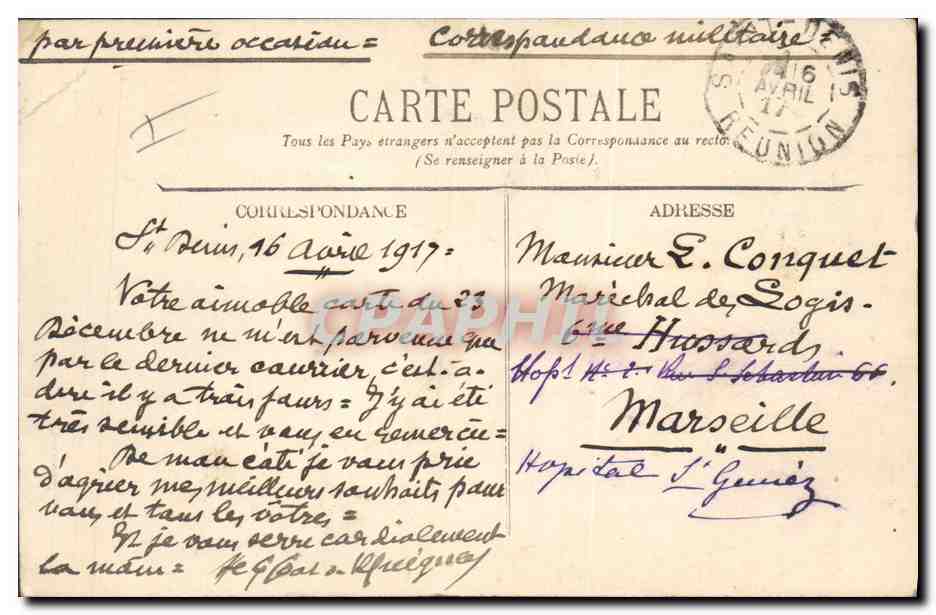 par première occasion = Correspondance militaire =
ST DENIS
16
AVRIL
17
REUNION
CARTE POSTALE
Tous les Pays étrangers n'acceptent pas la Correspondance au recto.
(Se renseigner à la Poste).
CORRESPONDANCE
St Denis, 16 Avril 1917 =
Votre aimable carte du 23
Décembre ne m'est parvenue que
par le dernier courrier, c'est-à-
dire il y a trois jours = J'y ai été
très sensible et vous en remercie =
De mon côté je vous prie
d'agréer mes meilleurs souhaits pour
vous et tous les vôtres =
Et je vous serre cordialement
la main =
ADRESSE
Monsieur E. Conquet
Maréchal des Logis.
6me Hussards
Hopl St Sébastien 66.
Marseille
Hopital St Geniez
CPAPHIL